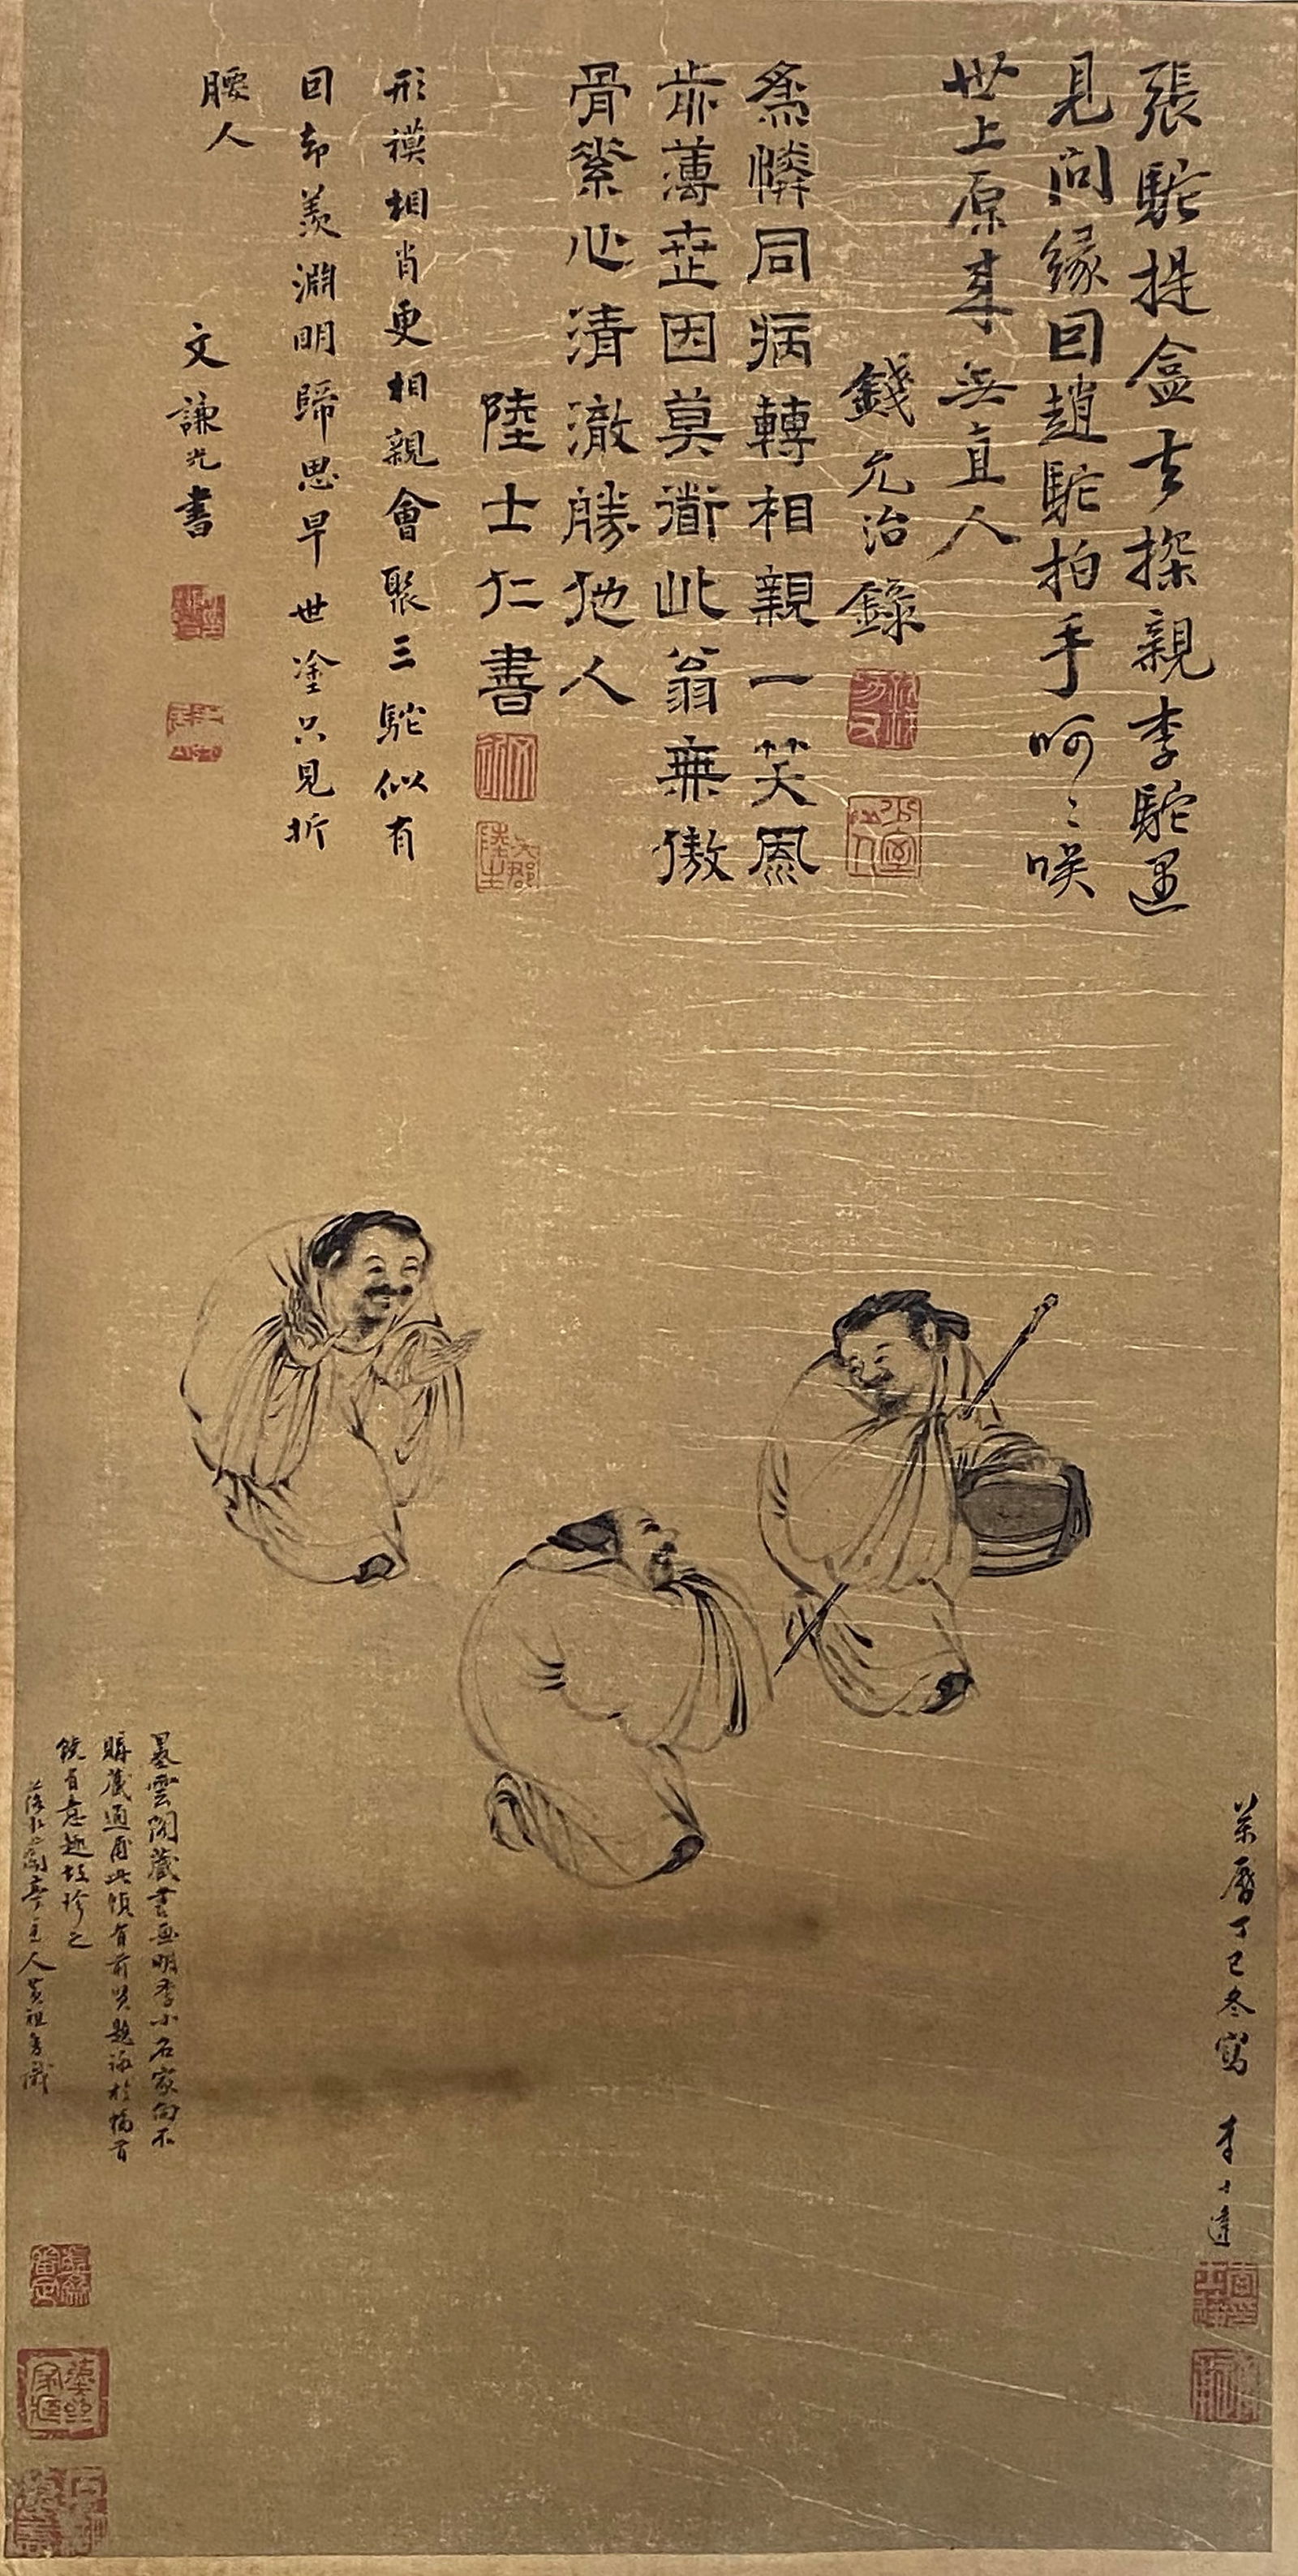 張駝提盒去探親李駝遇
見問緣因趙駝拍手呵〻咲
世上原來無直人
錢允治錄
為憐同病轉相親一笑風
前薄世因莫衟此翁無傲
骨縈心清澈勝他人
陸士仁書
形模相肖更相親會聚三駝似有
因却羨淵明歸思早世塗只見折
腰人
文謙光書
萬曆丁巳冬寫 李士達
墨雲閣藏書画明季小名家向不
購藏適有此幀有前賢題詠於幅首
饒有意趣故珍之
主人黃祖識